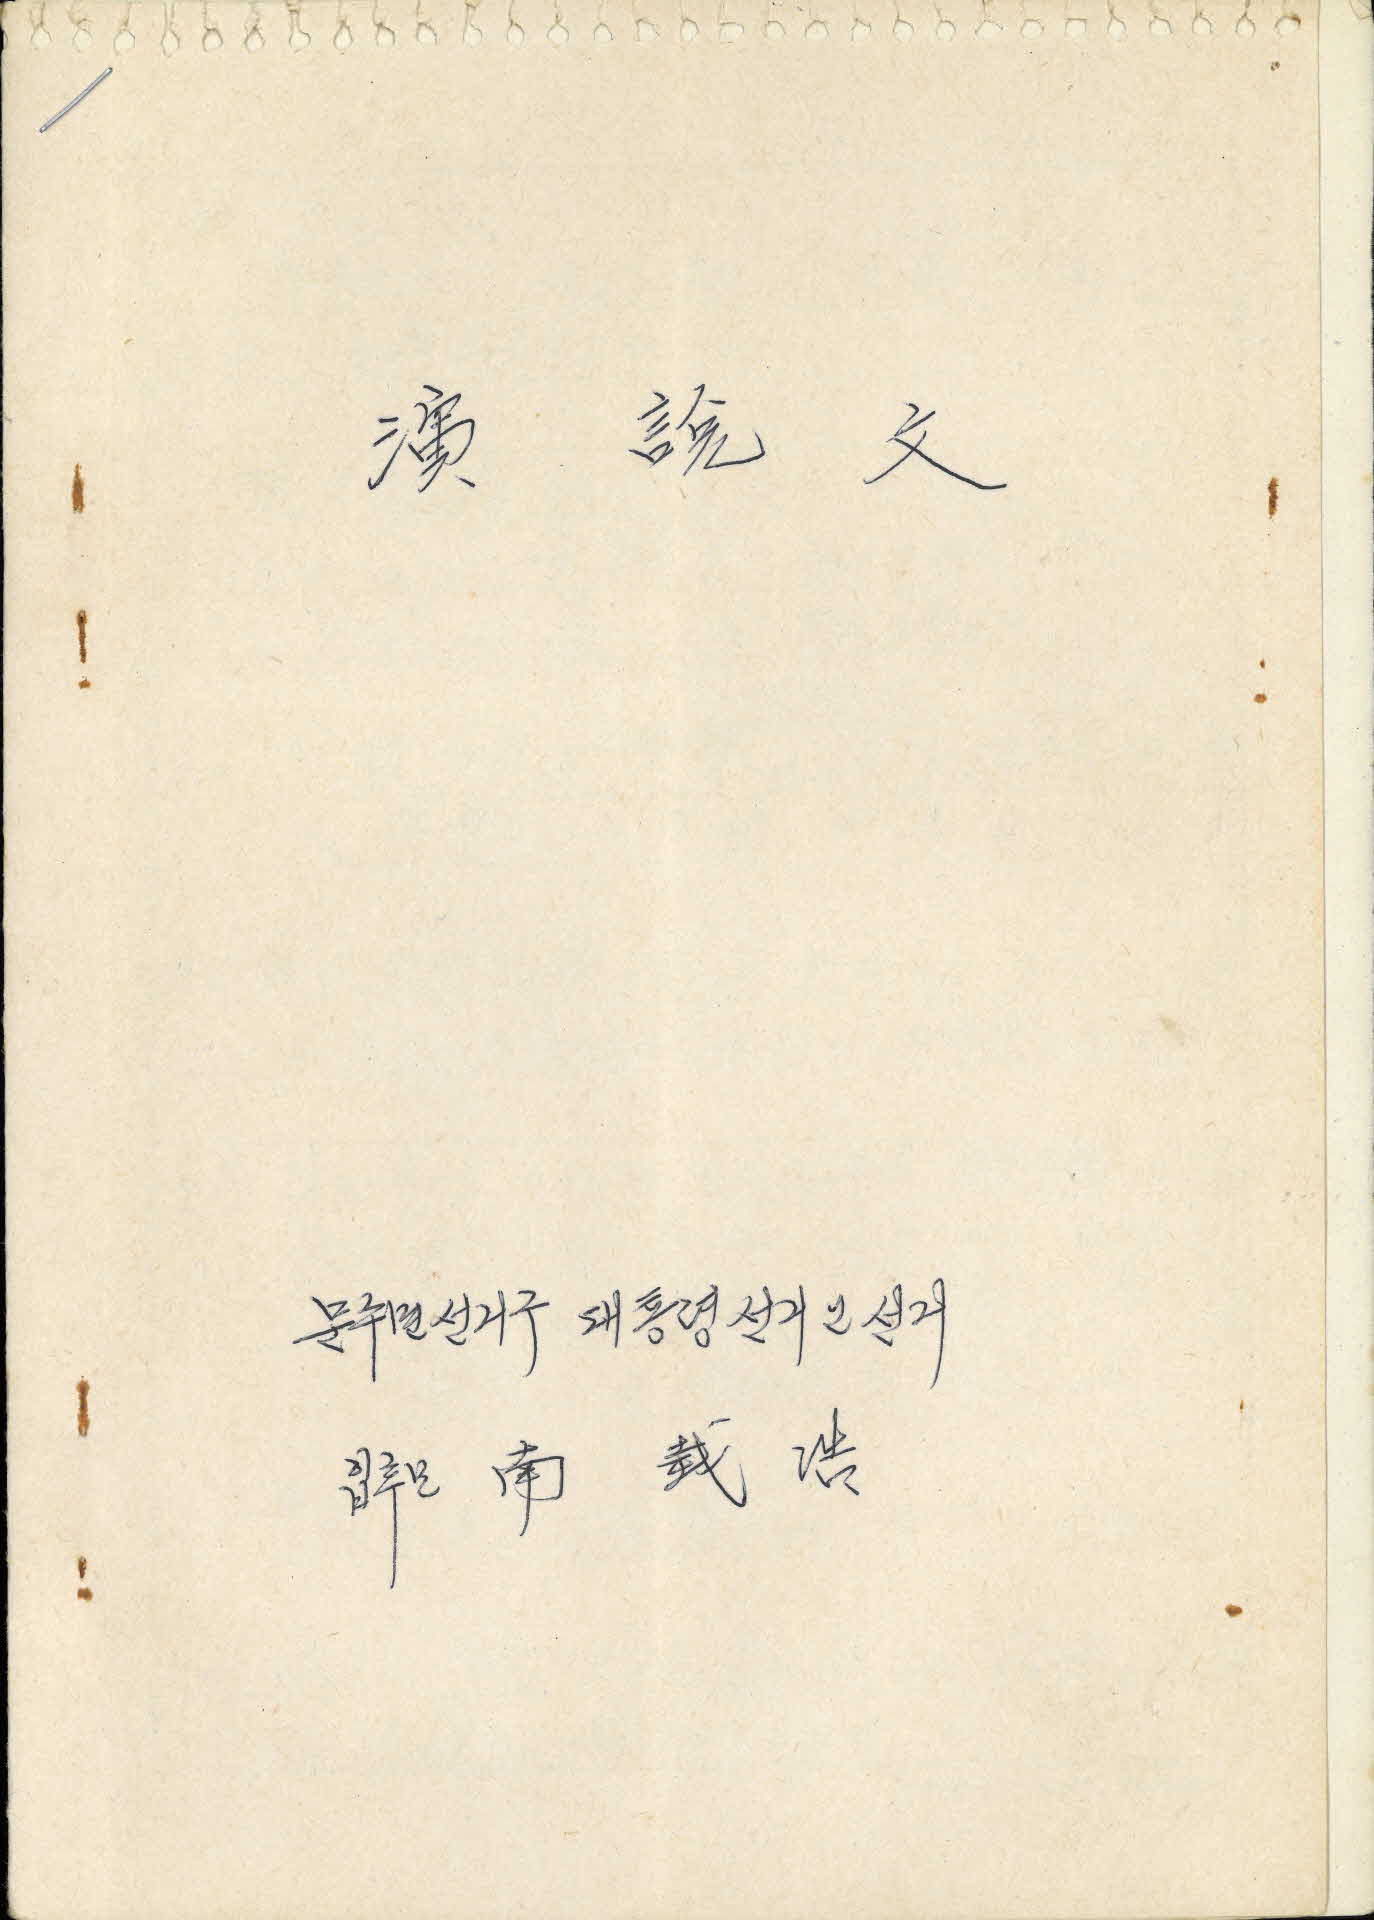 演 說 文
문주면선거구 대통령선거인선거
입후보 南 載 浩